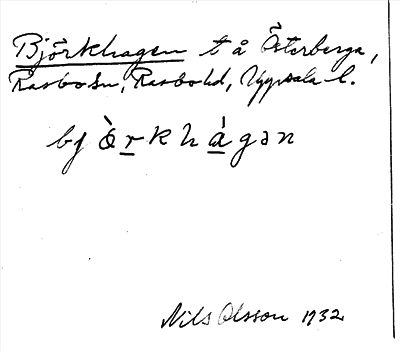 Björkhagen t å Österberga,
Rasbo sn, Rasbo hd, Uppsala l.
bjò̈rkhágən
Nils Olsson 1932